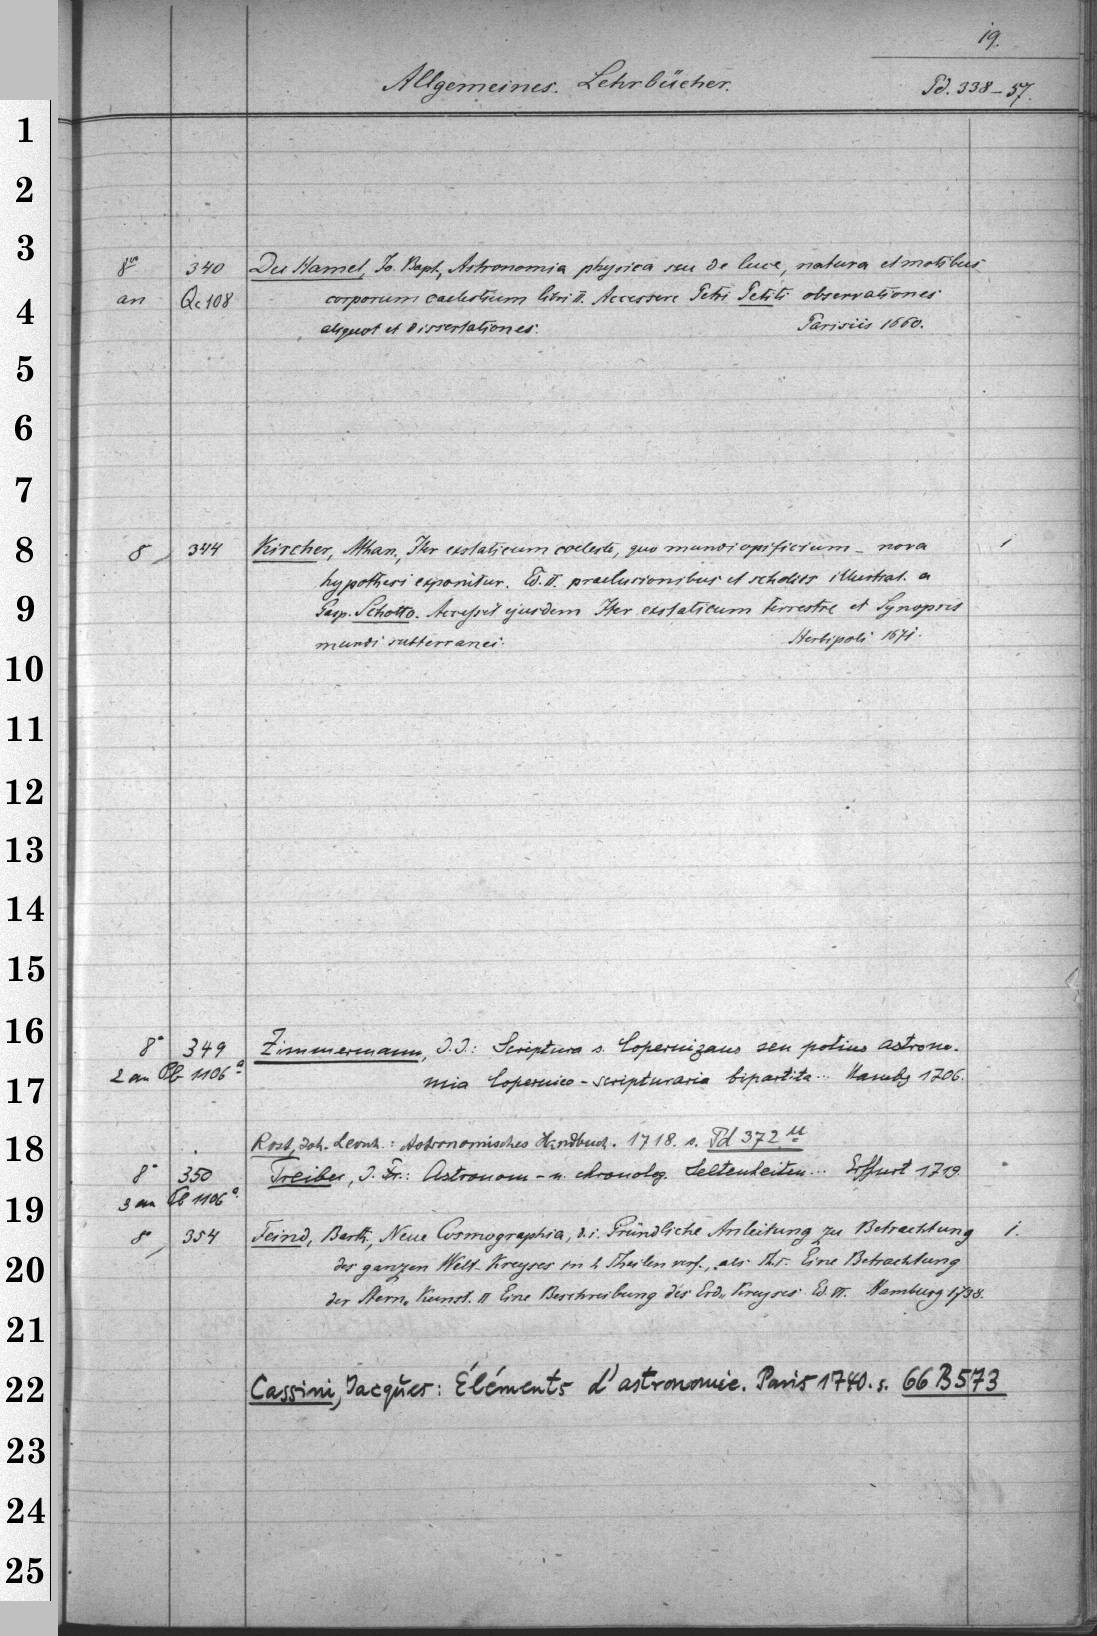 19.
Allgemeines. Lehrbücher.
Pd. 338-57.
1
2
3
8vo 340 Du Hamel, Jo. Bapt., Astronomia physica seu de luce, natura et motibus
4
an Qc 108 corporum caelestium libri II. Accessere Petri Petiti observationes
aliquot et dissertationes. Parisiis 1660.
5
6
7
8
8 344 Kircher, Athan., Iter exstaticum coeleste, quo mundi opificium - nova 1
hypothesi exponitur. Ed. II. praelusionibus et scholiis illustrat. a
9
Gasp. Schotto. Accessit ejusdem Iter exstaticum terrestre et Synopsis
mundi subterranei. Herbipoli 1671.
10
11
12
13
14
15
16
8° 349 Zimmermann, J. J.: Scriptura s. Copernizans seu potius astrono-
2 an Pb 1106a mia Copernico-scripturaria bipartita... Hambg 1706.
17
18
Rost, Joh. Leonh.: Astronomisches Handbuch. 1718. s. Pd 372 u
8° 350 Treiber, J. Fr.: Astronom- u. chronolog. Seltenheiten... Erffurt 1719
3 an Pb 1106a.
19
8° 354 Feind, Barth., Neue Cosmographia, d. i. Gründliche Anleitung zu Betrachtung 1.
20
des ganzen Welt-Kreyses in 2 Theilen verf., als Th I. Eine Betrachtung
der Stern-Kunst. II Eine Beschreibung des Erd-Kreyses Ed. III. Hamburg 1738.
21
22
Cassini, Jacques: Éléments d'astronomie. Paris 1740. s. 66 B 573
23
24
25